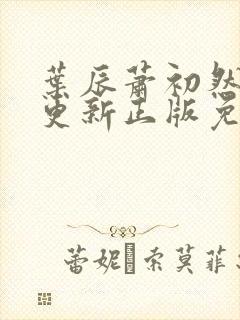 葉辰蕭初然
更新正版免
蕾妮·索莫菲